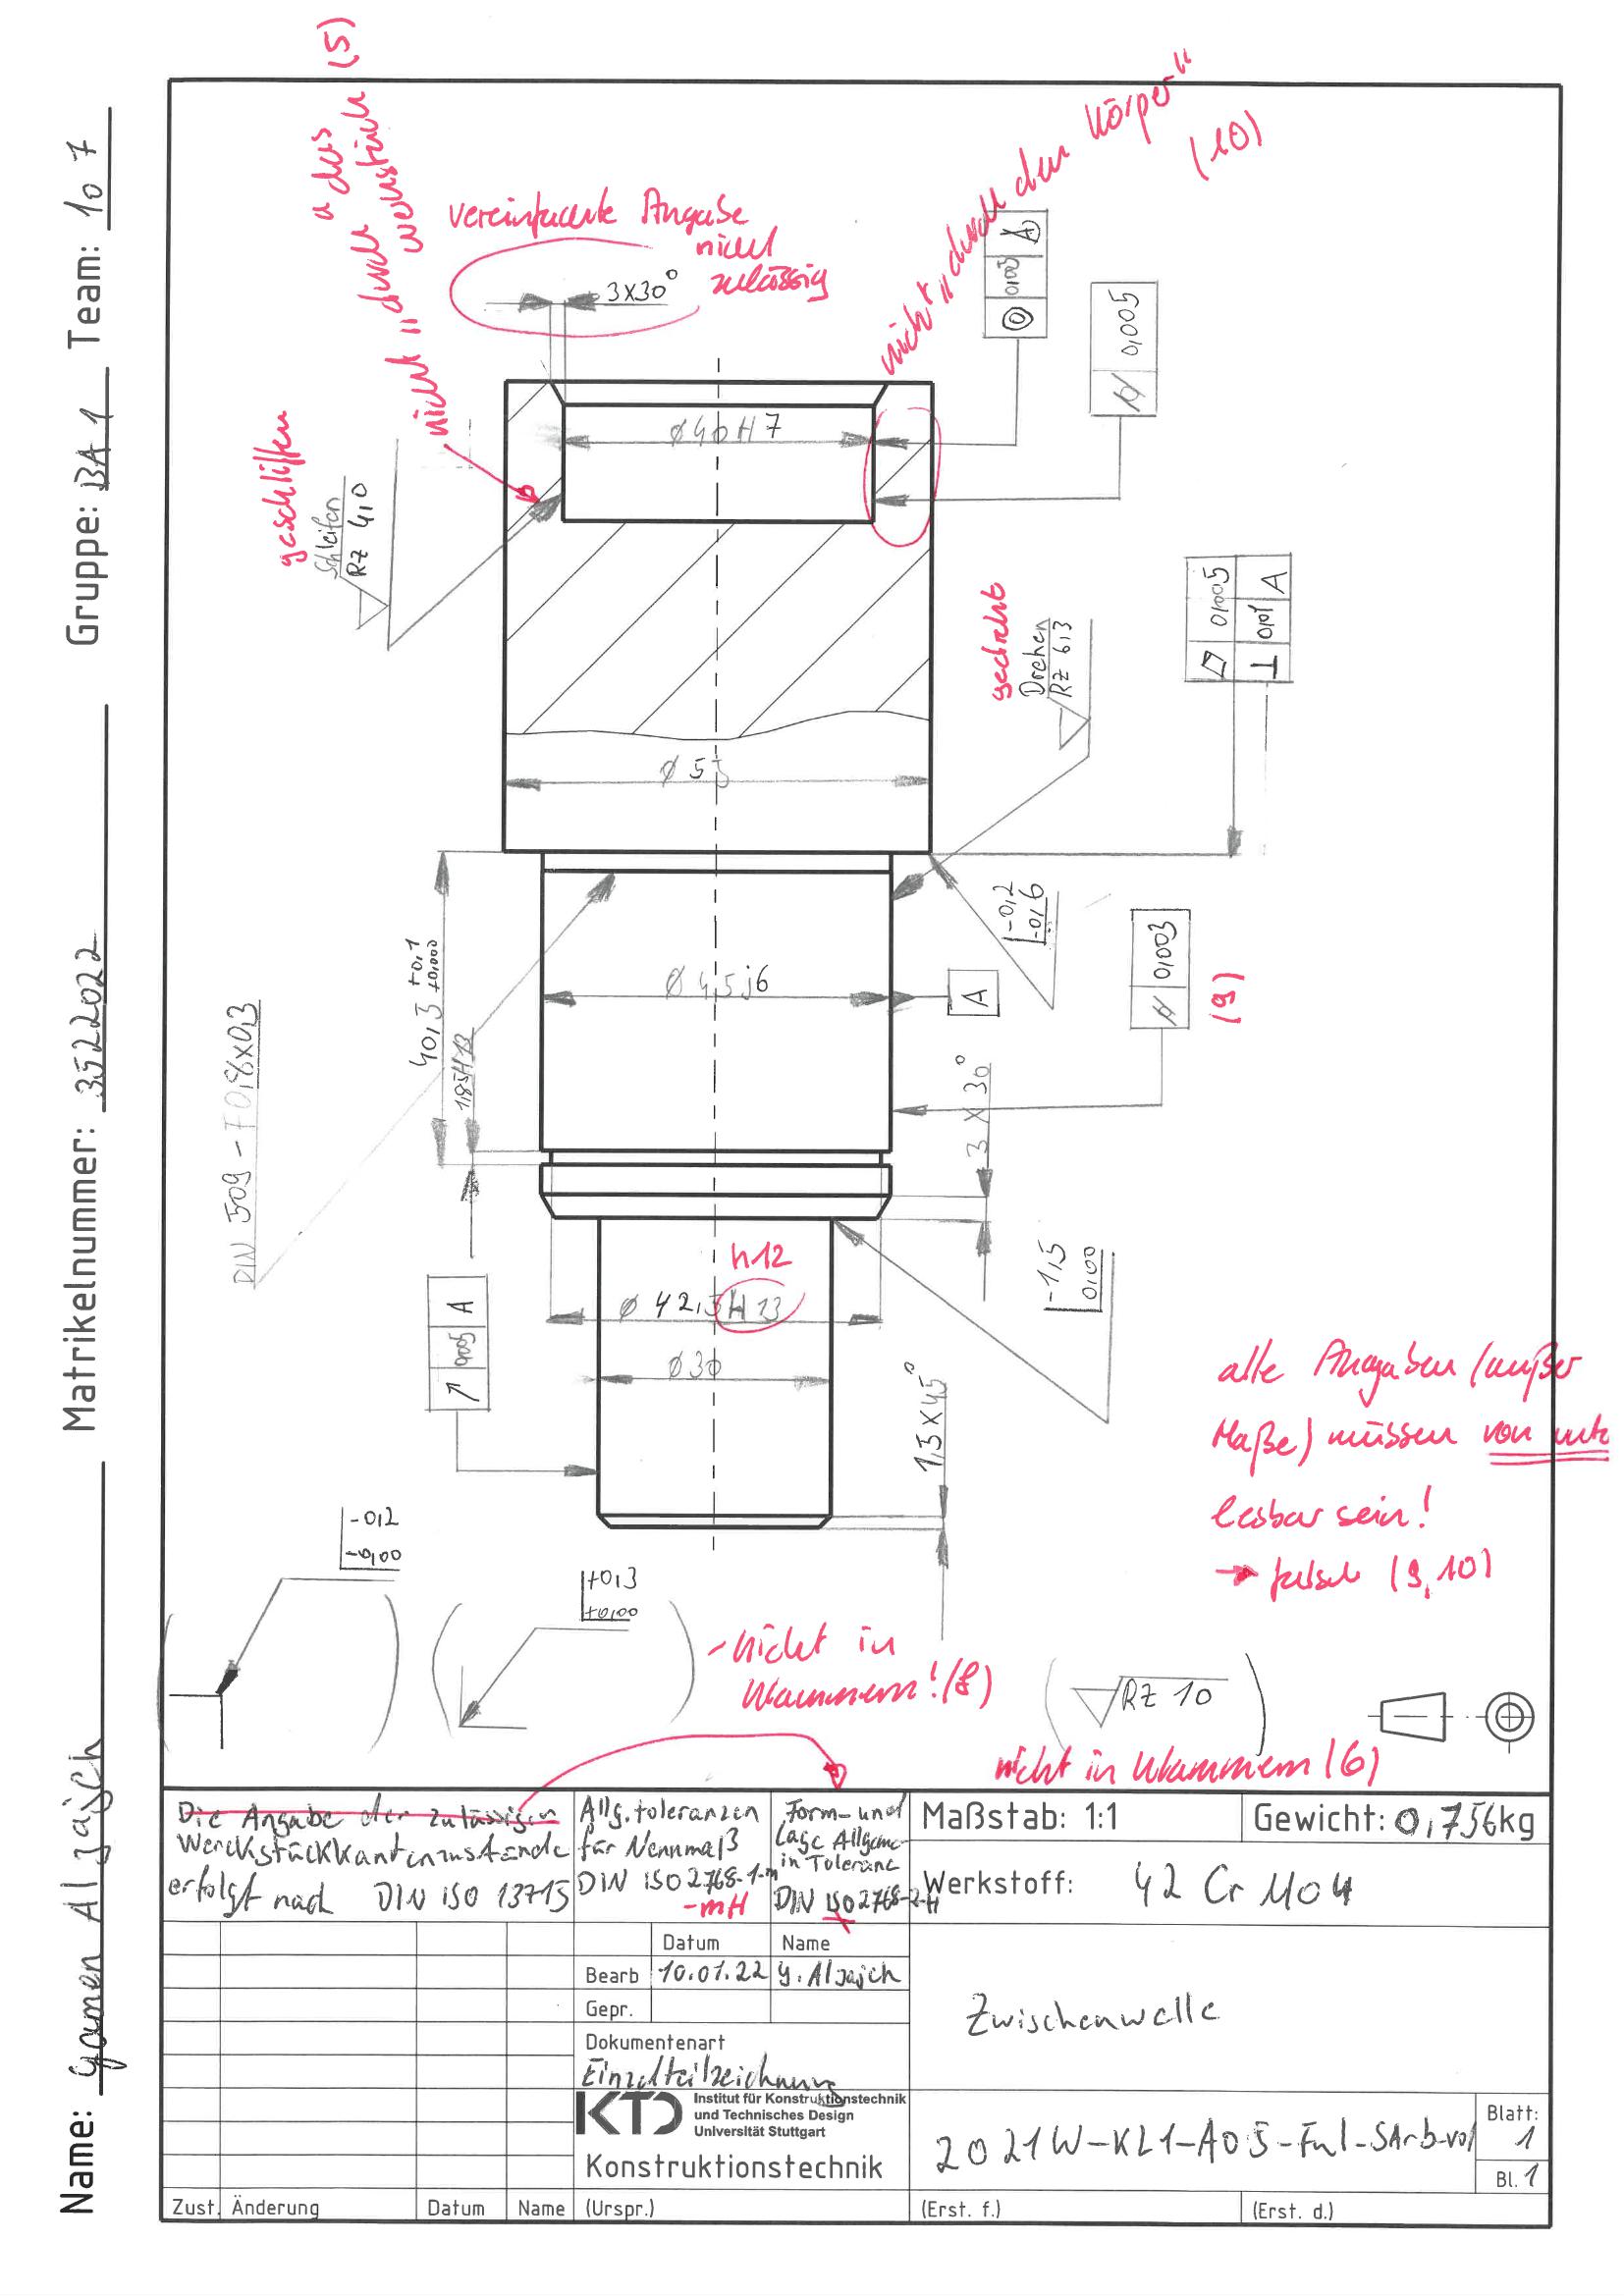 Name: Yamen Alzajch
Matrikelnummer: 3522022
Gruppe: BA 1
Team: 107
nicht "durch das Werkstück" (5)
vereinfachte Angabe
nicht
zulässig
3X30°
nicht "durch den Körper"
(10)
◎ 0,03 A
⌭ 0,005
ø40H7
geschliffen
Schleifen
RZ 4,0
gedreht
Drehen
RZ 6,3
⏥ 0,005
⊥ 0,01 A
ø 53
-0,2
-0,6
DIN 509 - F0,8x0,3
40,3 +0,1 +0,000
1,85H13
ø 45j6
A
⌭ 0,003
(9)
3 X 30°
h12
ø 42,5H13
ø30
↗ 0,05 A
-1,5
0,00
1,5X45°
alle Angaben (außer
Maße) müssen von unte
lesbar sein!
→ falsch (9,10)
-0,2
-0,00
+0,3
+0,00
- nicht in
Klammern! (8)
RZ 10
nicht in Klammern (6)
Die Angabe der zulässigen
Werckstückkantenzustände
erfolgt nach DIN ISO 13715
Allg.toleranzen
für Nennmaß
DIN ISO2768-1-m
-mH
Form- und
Lage Allgeme-
in Toleranc
DIN ISO2768-2-H
Maßstab: 1:1
Gewicht: 0,756kg
Werkstoff: 42 CrMo4
Datum Name
Bearb 10.01.22 Y. Alzajch
Gepr.
Dokumentenart
Einzelteilzeichnung
Zwischenwelle
KTD Institut für Konstruktionstechnik
und Technisches Design
Universität Stuttgart
Konstruktionstechnik
2021W-KL1-A05-Fnl-SArb-vol
Blatt:
1
Bl. 1
Zust. Änderung Datum Name (Urspr.) (Erst. f.) (Erst. d.)